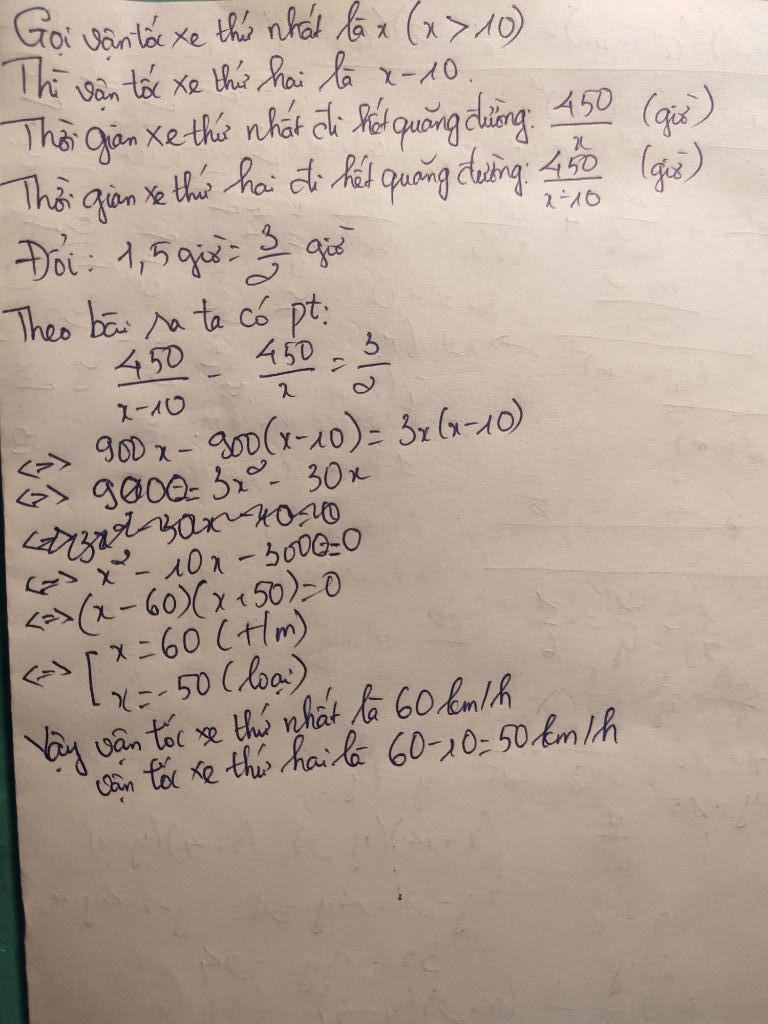 Gọi vận tốc xe thứ nhất là x (x > 10)
Thì vận tốc xe thứ hai là x-10.
Thời gian xe thứ nhất đi hết quãng đường: 450/x (giờ)
Thời gian xe thứ hai đi hết quãng đường: 450/x-10 (giờ)
Đổi: 1,5 giờ = 3/2 giờ
Theo bài ra ta có pt:
450/x-10 - 450/x = 3/2
<=> 900x - 900(x-10) = 3x(x-10)
<=> 9000 = 3x² - 30x
<=> x² - 10x - 3000 = 0
<=> (x-60)(x+50) = 0
<=> [ x = 60 (t/m)
x = -50 (loại)
Vậy vận tốc xe thứ nhất là 60 km/h
vận tốc xe thứ hai là 60-10 = 50 km/h